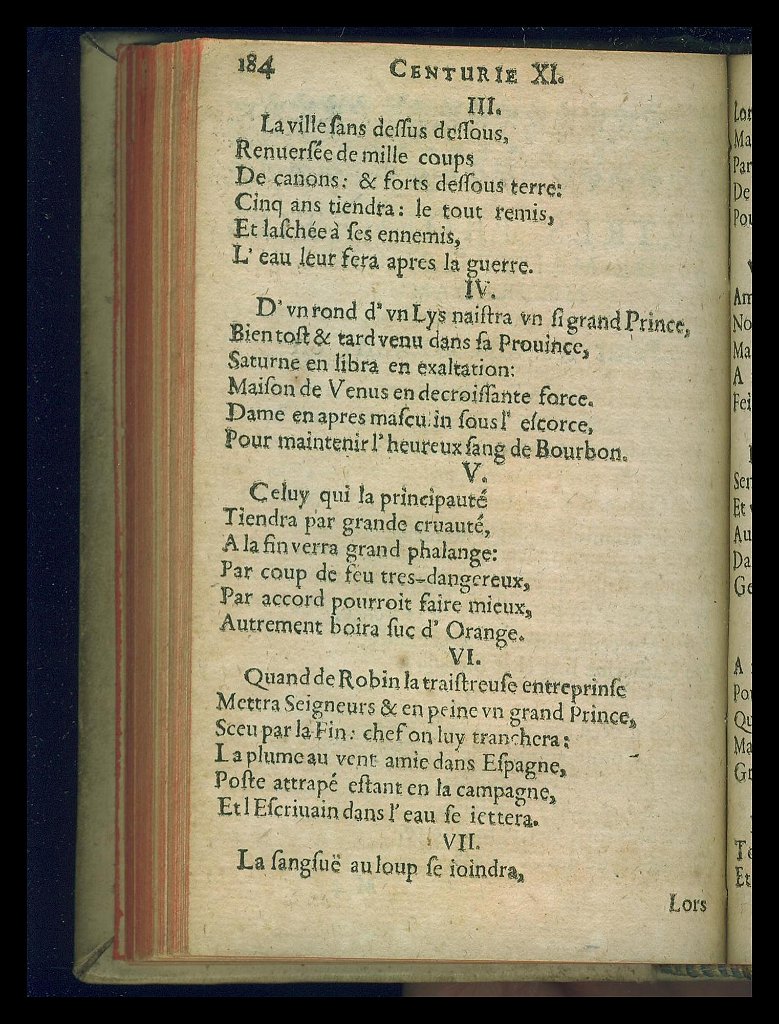 184 CENTURIE XI.
III.
La ville ſans deſſus deſſous,
Renuerſée de mille coups
De canons: & forts deſſous terre:
Cinq ans tiendra: le tout remis,
Et laſchée à ſes ennemis,
L' eau leur fera apres la guerre.
IV.
D' vn rond d' vn Lys naiſtra vn ſi grand Prince,
Bien toſt & tard venu dans ſa Prouince,
Saturne en libra en exaltation:
Maiſon de Venus en decroiſſante force.
Dame en apres maſculin ſous l' eſcorce,
Pour maintenir l' heureux ſang de Bourbon.
V.
Celuy qui la principauté
Tiendra par grande cruauté,
A la fin verra grand phalange:
Par coup de feu tres-dangereux,
Par accord pourroit faire mieux,
Autrement boira ſuc d' Orange.
VI.
Quand de Robin la traiſtreuſe entreprinſe
Mettra Seigneurs & en peine vn grand Prince,
Sceu par la Fin: chef on luy tranchera:
La plume au vent amie dans Eſpagne,
Poſte attrapé eſtant en la campagne,
Et l Eſcriuain dans l' eau ſe iettera.
VII.
La ſangſuë au loup ſe ioindra,
Lors
Ma
Par
De
Pou
Am
No
Ma
A
Fei
Ser
Et
Au
Da
Ge
A
Pou
Qu
Ma
Gr
To
Et